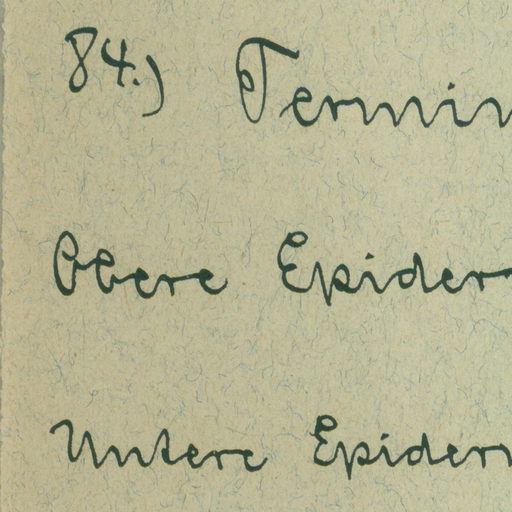 84.) Termin
Obere Epider
Untere Epider